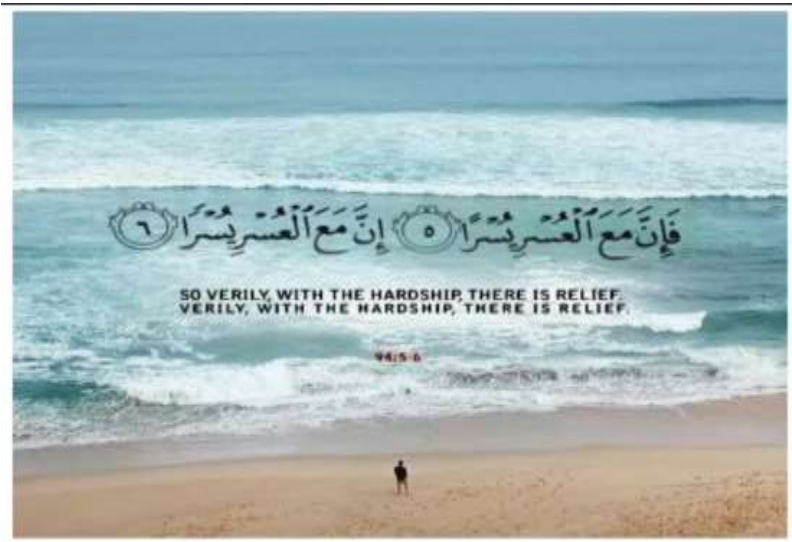 فَإِنَّ مَعَ ٱلْعُسْرِ يُسْرًا ٥ إِنَّ مَعَ ٱلْعُسْرِ يُسْرًا ٦
SO VERILY, WITH THE HARDSHIP, THERE IS RELIEF.
VERILY, WITH THE HARDSHIP, THERE IS RELIEF.
94:5-6